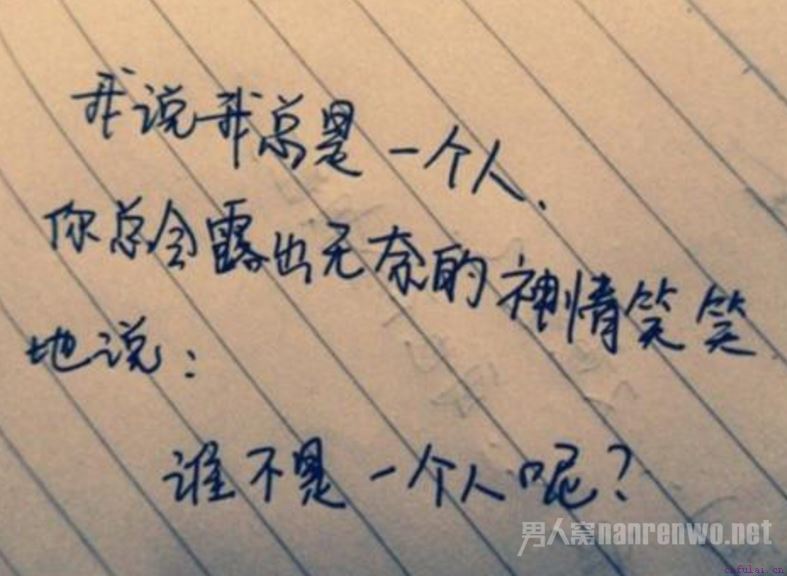 我说我总是一个人、
你总会露出无奈的神情笑笑
地说：
谁不是一个人呢？
男人窝nanrenwo.net
cnfulai.cn